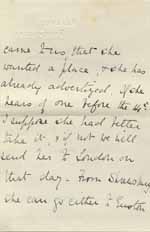 came to us that she
wanted a place, & she has
already advertized. If she
hears of one before the 4th
I suppose she had better
take it, & if not we will
send her to London on
that day. From
she can go either to Euston